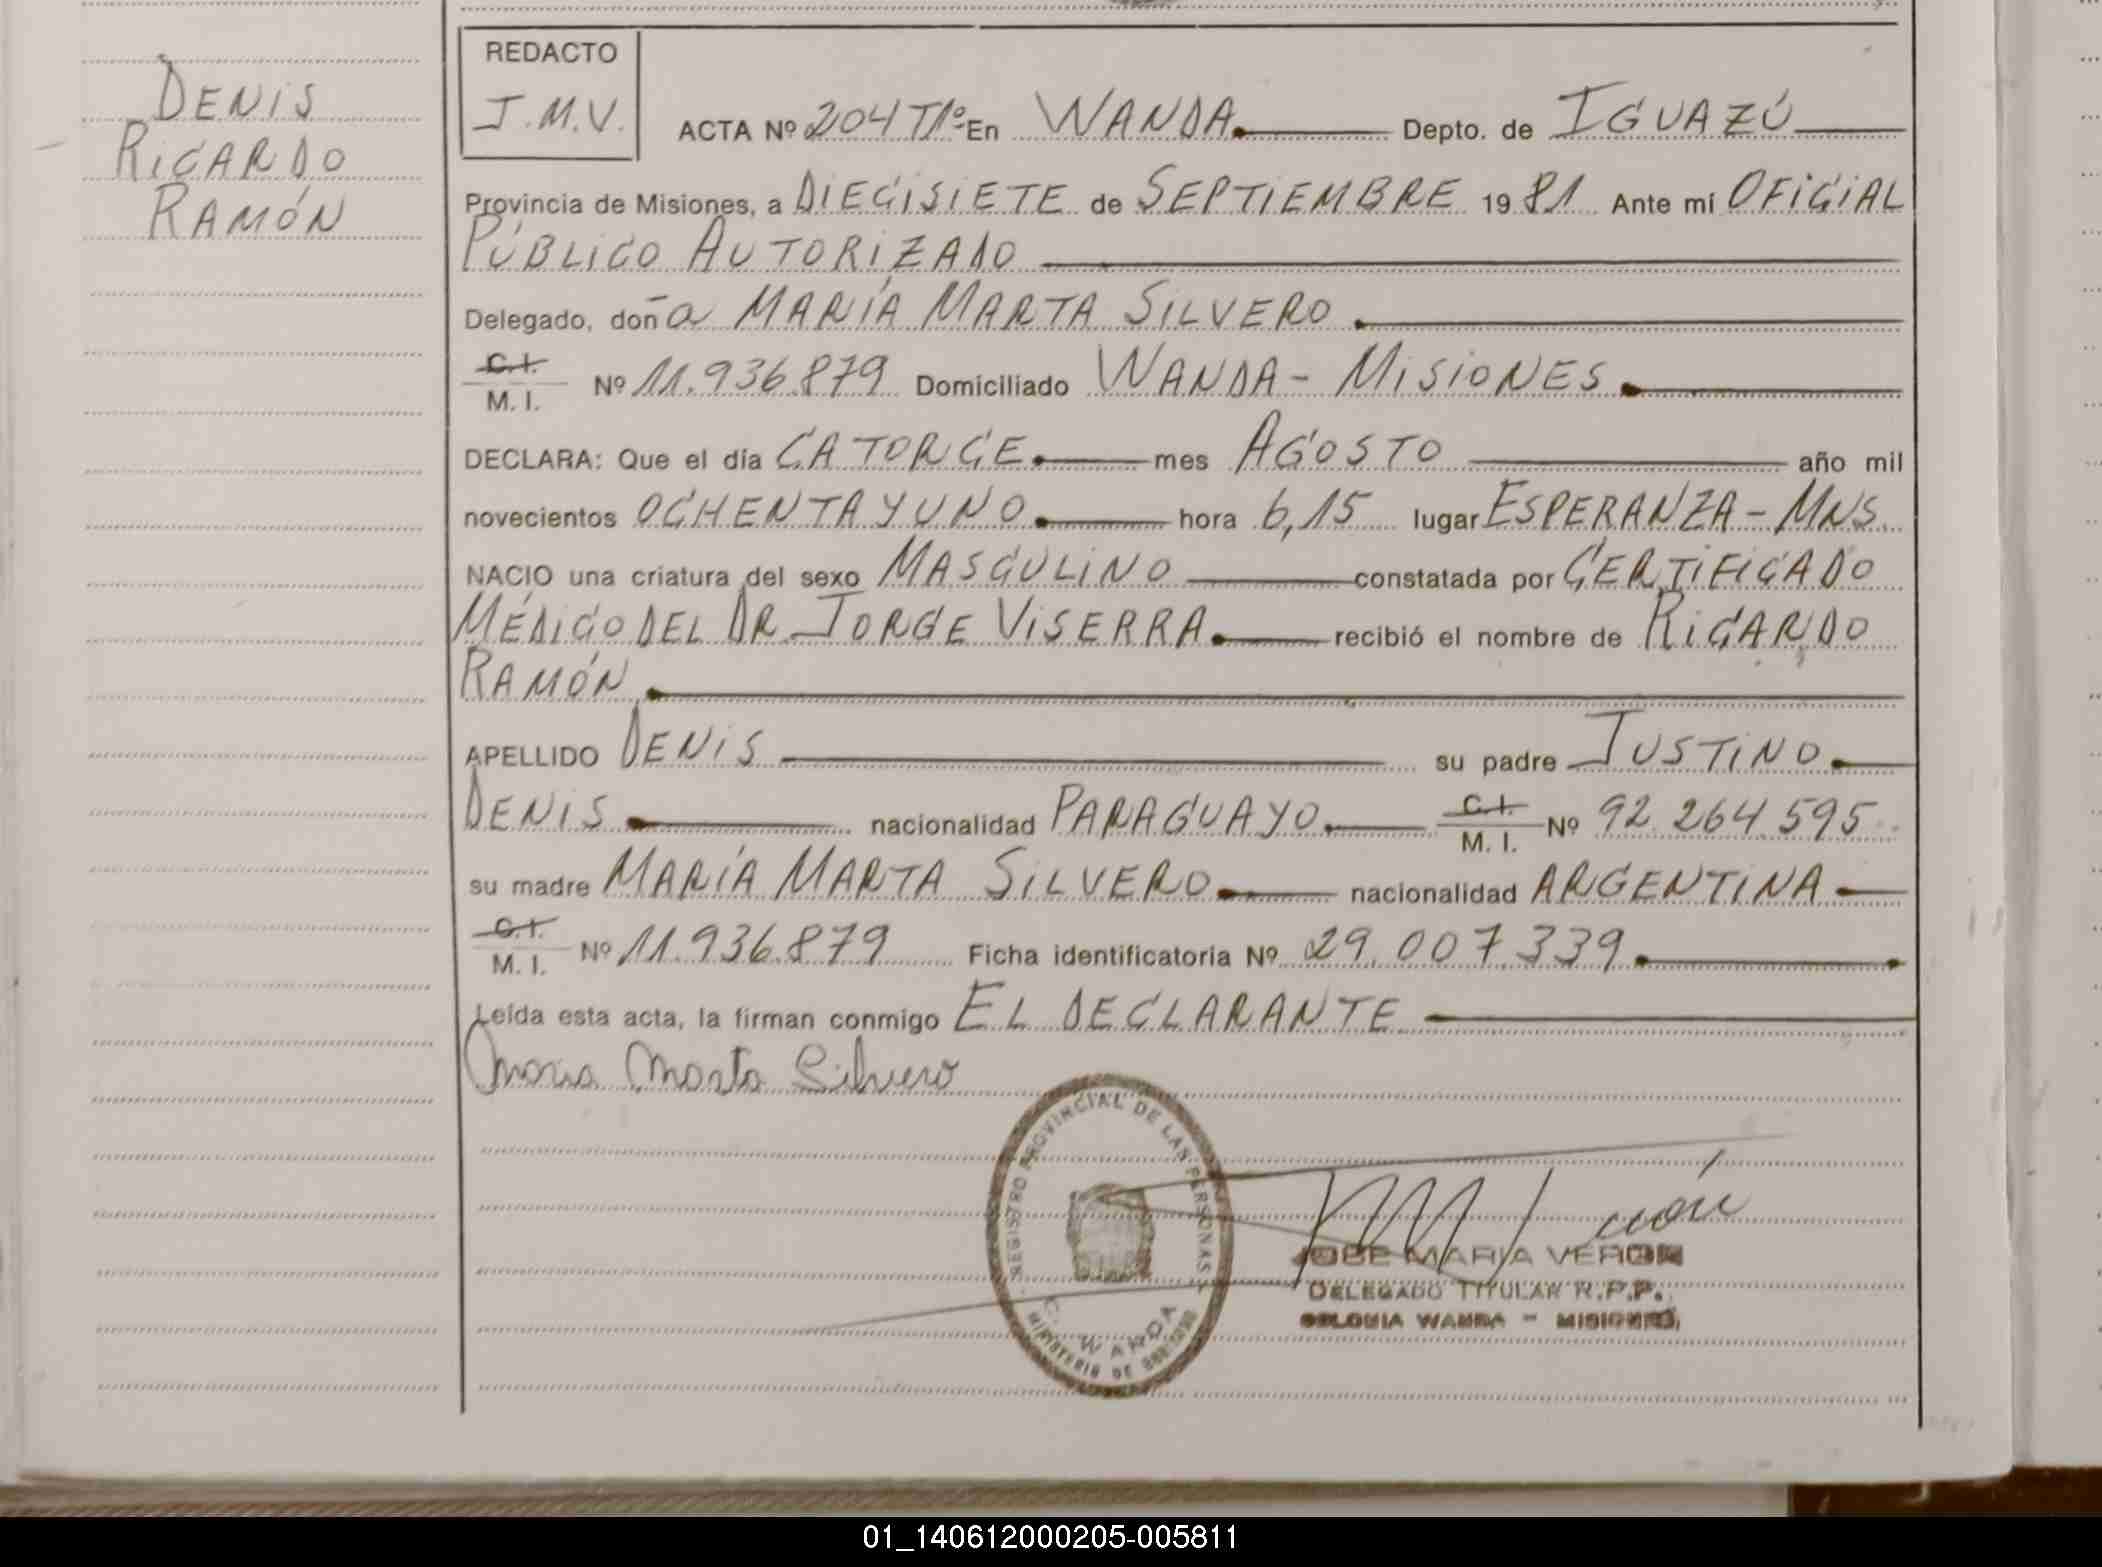 DENIS
RICARDO
RAMÓN
REDACTO
J.M.V.
ACTA Nº 204 Tº1º En WANDA Depto. de IGUAZÚ
Provincia de Misiones, a DIECISIETE de SEPTIEMBRE 1981 Ante mí OFICIAL
PÚBLICO AUTORIZADO
Delegado, doña MARÍA MARTA SILVERO
C.I.
M. I. Nº 11.936.879 Domiciliado WANDA - MISIONES
DECLARA: Que el día CATORCE mes AGOSTO año mil
novecientos OCHENTA Y UNO hora 6,15 lugar ESPERANZA - MNS.
NACIO una criatura del sexo MASCULINO constatada por CERTIFICADO
MÉDICO DEL DR JORGE VISERRA recibió el nombre de RICARDO
RAMÓN
APELLIDO DENIS su padre JUSTINO
DENIS nacionalidad PARAGUAYO C.I. M. I. Nº 92.264.595
su madre MARÍA MARTA SILVERO nacionalidad ARGENTINA
C.I. M. I. Nº 11.936.879 Ficha identificatoria Nº 29.007.339
Leída esta acta, la firman conmigo EL DECLARANTE
Maria Marta Silvero
REGISTRO PROVINCIAL DE LAS PERSONAS
C. WANDA
MINISTERIO DE GOBIERNO
JOSE MARIA VERON
DELEGADO TITULAR R.P.P.
COLONIA WANDA - MISIONES
01_140612000205-005811